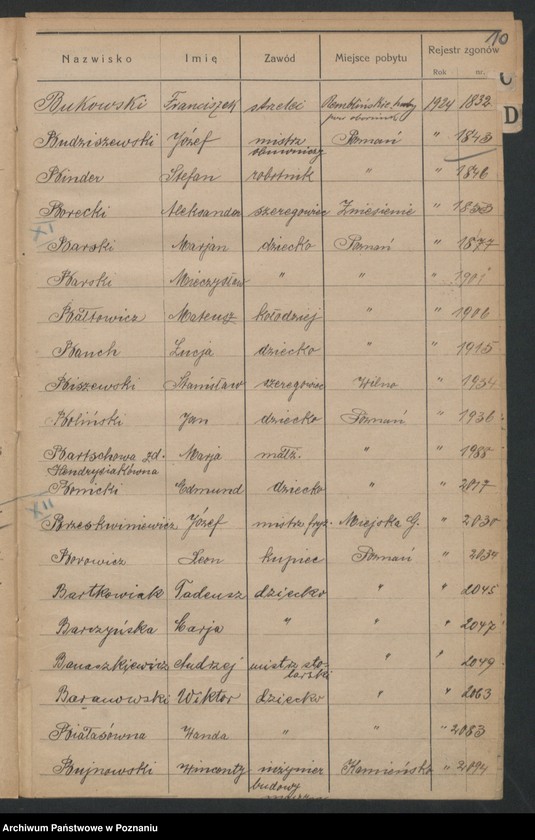 10
Nazwisko Imię Zawód Miejsce pobytu Rejestr zgonów
Rok nr.
D
Bukowski Franciszek strzelec 1924 1832
Budziszewski Józef mistrz Poznań " 1843
obuwniczy
Binder Stefan robotnik " " 1846
Borecki Aleksander szeregowiec Zniesienie "
XI
Barski Marjan dziecko Poznań " 1877
Barski Mieczysław " " " 1901
Bałtowicz Mateusz kołodziej " " 1906
Banch Łucja dziecko " " 1915
Biszewski Stanisław szeregowiec Wilno " 1934
Boliński Jan dziecko Poznań " 1936
Bartschowa zd. Marja małż. " " 1988
Handrysiakówna
Bonicki Edmund dziecko " " 2017
XII
Brzeskwiniewicz Józef mistrz fryz. Miejska G. " 2030
Borowicz Leon kupiec Poznań " 2034
Bartkowiak Tadeusz dziecko " " 2045
Barczyńska Marja " " " 2047
Banaszkiewicz Andrzej mistrz sto- " " 2049
larski
Baranowski Wiktor dziecko " " 2063
Białasówna Wanda " " " 2083
Bujnowski Wincenty inżynier Kamieńsko " 2094
budowy
Archiwum Państwowe w Poznaniu